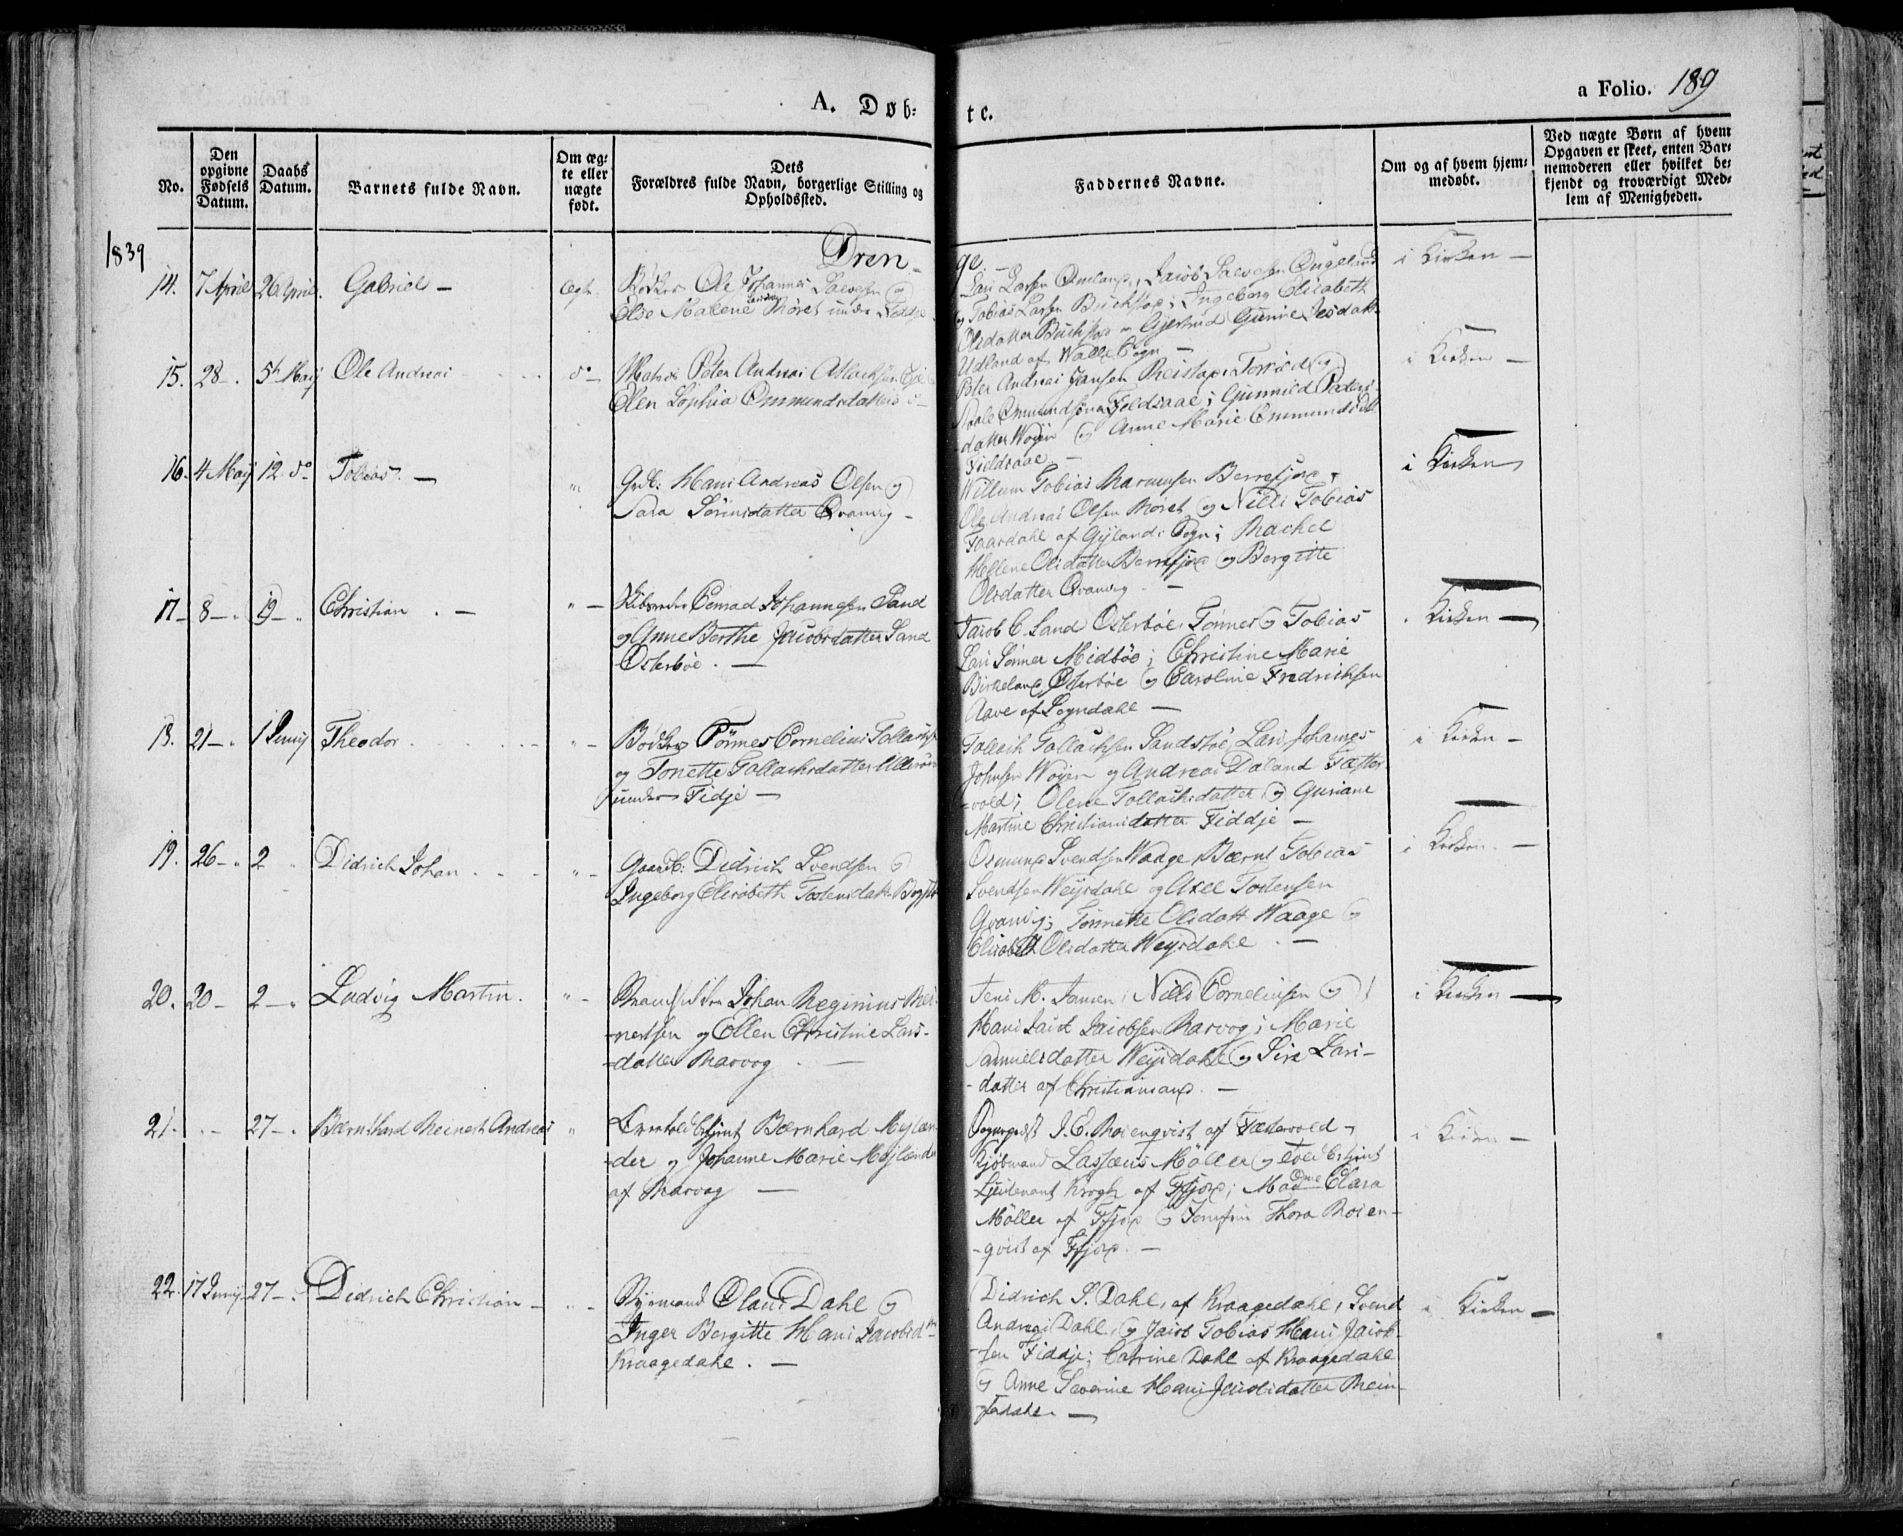 A. Døb-te.
a Folio. 189
No.
Den opgivne Fødsels Datum.
Daabs Datum.
Barnets fulde Navn.
Om ægte eller nægte født.
Dets Forældres fulde Navn, borgerlige Stilling og Opholdssted.
Faddernes Navne.
Om og af hvem hjemmedøbt.
Ved nægte Børn af hvem Opgaven er skeet, enten Barnemoderen eller hvilket bekjendt og troværdigt Medlem af Menigheden.
1839
Drenge.
14. 7 April 26 April. Gabriel — ægte
Bødker Ole Johannes Salvesen og
Else Malene Røret under Feddje
Lars Larsen Omland, Jacob Salvesen
og Tobias Larsen Buchsjord; Ingeborg Elisabeth
Olsdatter og Gjertrud
Udland af Walle Sogn —
i Kirken —
15. 28 — 5te Maij Ole Andreas do —
Peter Andreas
Olen Sophia Ommundsdatter
Peter Andreas Jansen
Ommundsen Feldsaae; Gunnild Peders-
datter Wogen og Anne Marie Ommundsdatt
Fieldsaae. —
i Kirken —
16. 4 Maij 12 do Tobias. — "
Grdb: Hans Andreas Olsen og
Sara Sörensdatter Qvanvig —
Willum Tobias Rasmusen Berrefjord,
Ole Andreas Olsen Røret og Nills Tobias
Faardahl af Gylands Sogn; Rachel
Hellene Olsdatter Berrefjord og Bergitte
Olsdatter Qvanvig. —
i Kirken
17 — 8 — " 19 — " Christian. — " —
Conrad Johannesen Sand
og Anne Berthe Jacobsdatter Sand
Österbøe. —
Jacob C. Sand Österbøe, Tønnes og Tobias
Lars Sønner Midbøe; Christine Marie
Birkeland Østerbøe og Caroline Fredrichsen
Aave af Sogndahl —
Kirken —
18. 21 — " 1 Junij Theodor " —
Bødker Tönnes Cornelius Tollachs
og Tonette Tollachsdatter
under Fidje —
Tollach Tollachsen Sandstöe, Lars Johannes
Johnsen Wogen og Andreas Daland Fæster-
vold; Olene Tollachsdatter og Guriane
Martine Christiansdatter Fiddje —
i Kirken —
19. 26 — " 2 " Didrich Johan " —
Gaardb: Didrich Svendsen og
Ingeborg Elisabeth Tostensdatter
Osmund Svendsen Waage, Bærnt Tobias
Svendsen Weysdahl og Axel Tostensen
Qvanvig; Tønnette Olsdatt Waage og
Elisabeth Olsdatter Weysdahl. —
i Kirken. —
20. 20 — 2 — " Ludvig Martin. " —
Johan Reginius Rei-
nertsen og Ellen Christine Lars-
datter Ravog. —
Jens M. Jansen, Nills Cornelinsen og
Hans Jacob Jacobsen Ravog; Marie
Samuelsdatter Weysdahl og Sire Lars-
datter af Christiansand. —
i Kirken —
21. 27 — . Bærnthard Reinert Andreas "
Bærnhard Mijlæn-
der og Johanne Marie Mijlænder
af Ravog —
J. E. Rosenqvist af Fædevold,
Kjøbmand Lassæus Möller og
Ljeutenant Krogh af Ffjord; Madme Clara
Möller af Ffjord og Jomfru Thora Rosen-
qvist af Ffjord. —
i Kirken —
22. 17 Junij 27 — . Didrich Christian — " —
Olaus Dahl og
Inger Bergitte Hans Jacobsdtr
Kraagedahl. —
Didrich S. Dahl, af Kraagedahl, Svend
Andreas Dahl, og Jacob Tobias Hans Jacob-
sen Fiddje; Catrine Dahl af Kraagedahl
og Anne Severine Hans Jacobsdatter
i Kirken —